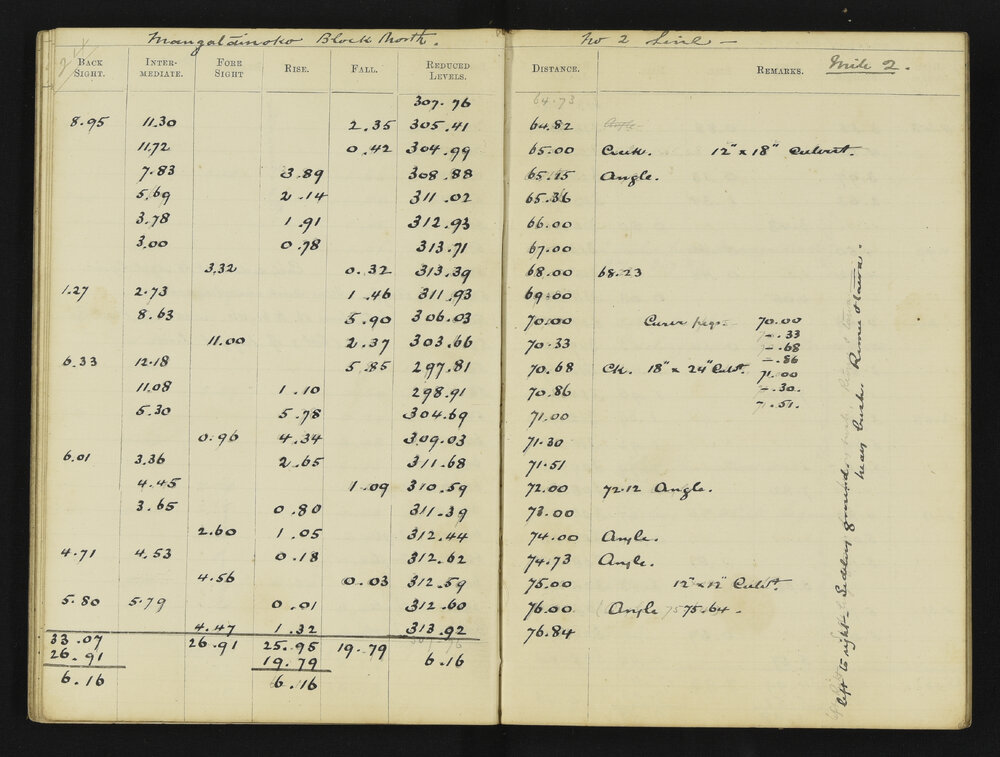 Mangatainoko Block North.
No 2 Line –
Mile 2.
BACK SIGHT. INTER-MEDIATE. FORE SIGHT RISE. FALL. REDUCED LEVELS. DISTANCE. REMARKS.
307.76 64.73
8.95 11.30 2.35 305.41 64.82 Angle
11.72 0.42 304.99 65.00 Creek. 12" x 18" Culvert.
7.83 3.89 308.88 65.15 Angle.
5.69 2.14 311.02 65.36
3.78 1.91 312.93 66.00
3.00 0.78 313.71 67.00
3.32 0.32 313.39 68.00 68.23
1.27 2.73 1.46 311.93 69.00
8.63 5.90 306.03 70.00 Curve pegs – 70.00
11.00 2.37 303.66 70.33 – .33
– .68
6.33 12.18 5.85 297.81 70.68 CK. 18" x 24" Culvt. – .86
71.00
11.08 1.10 298.91 70.86 – .30.
5.30 5.78 304.69 71.00 71.51.
0.96 4.34 309.03 71.30
6.01 3.36 2.65 311.68 71.51
4.45 1.09 310.59 72.00 72.12 Angle.
3.65 0.80 311.39 73.00
2.60 1.05 312.44 74.00 Angle.
4.71 4.53 0.18 312.62 74.73 Angle.
4.56 0.03 312.59 75.00 12" x 12" Culvt.
5.80 5.79 0.01 312.60 76.00 (Angle 75.64.
4.47 1.32 313.92 76.84
33.07 26.91 25.95 19.79
26.91 19.79 6.16
6.16 6.16
left to right – Sidling ground.